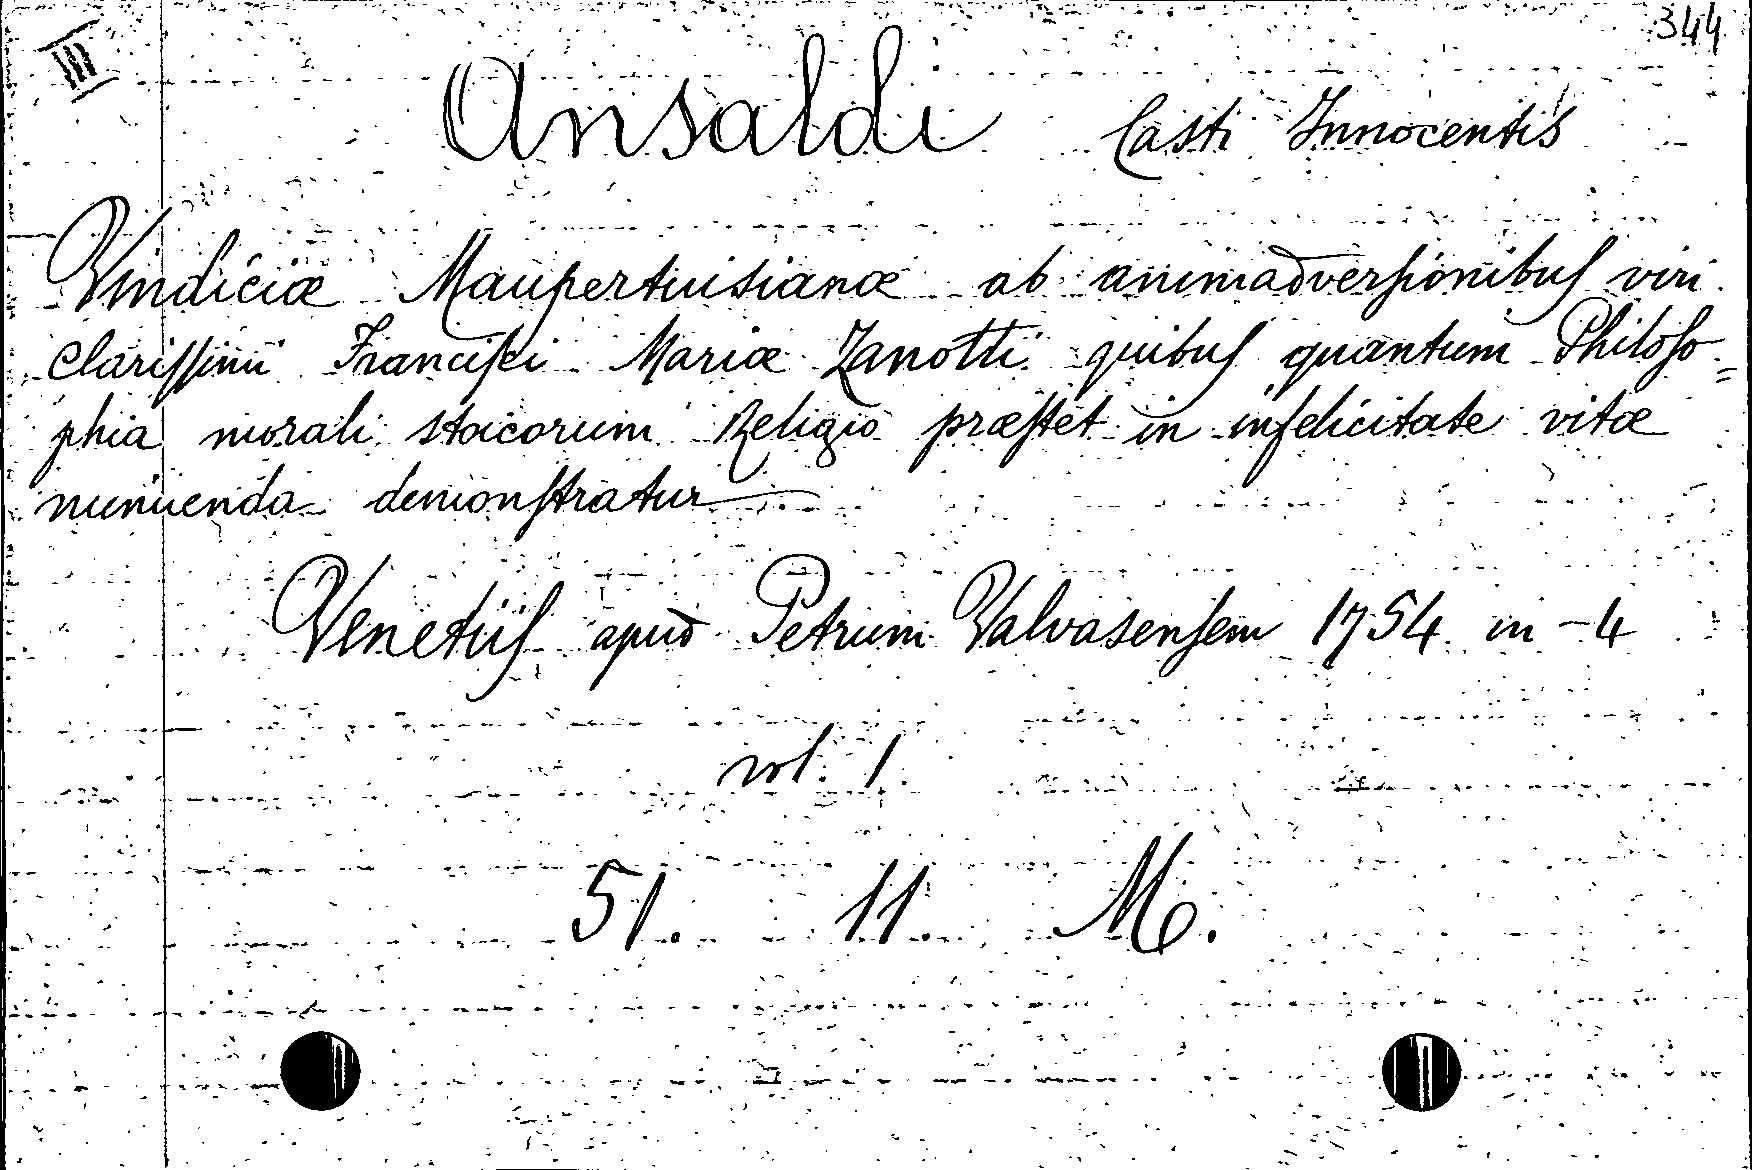 III
344
Ansaldi Casti Innocentis
Vindiciæ Maupertuisianæ ab animadverſionibuſ viri
clariſſimi Franciſci Mariæ Zanotti quibuſ quantum Philoſo=
phia morali stoicorum Religio præſtet in infelicitate vitæ
minuenda demonſtratur
Venetiiſ apud Petrum Valvasenſem 1754 in-4
vol. 1.
51. 11. M.